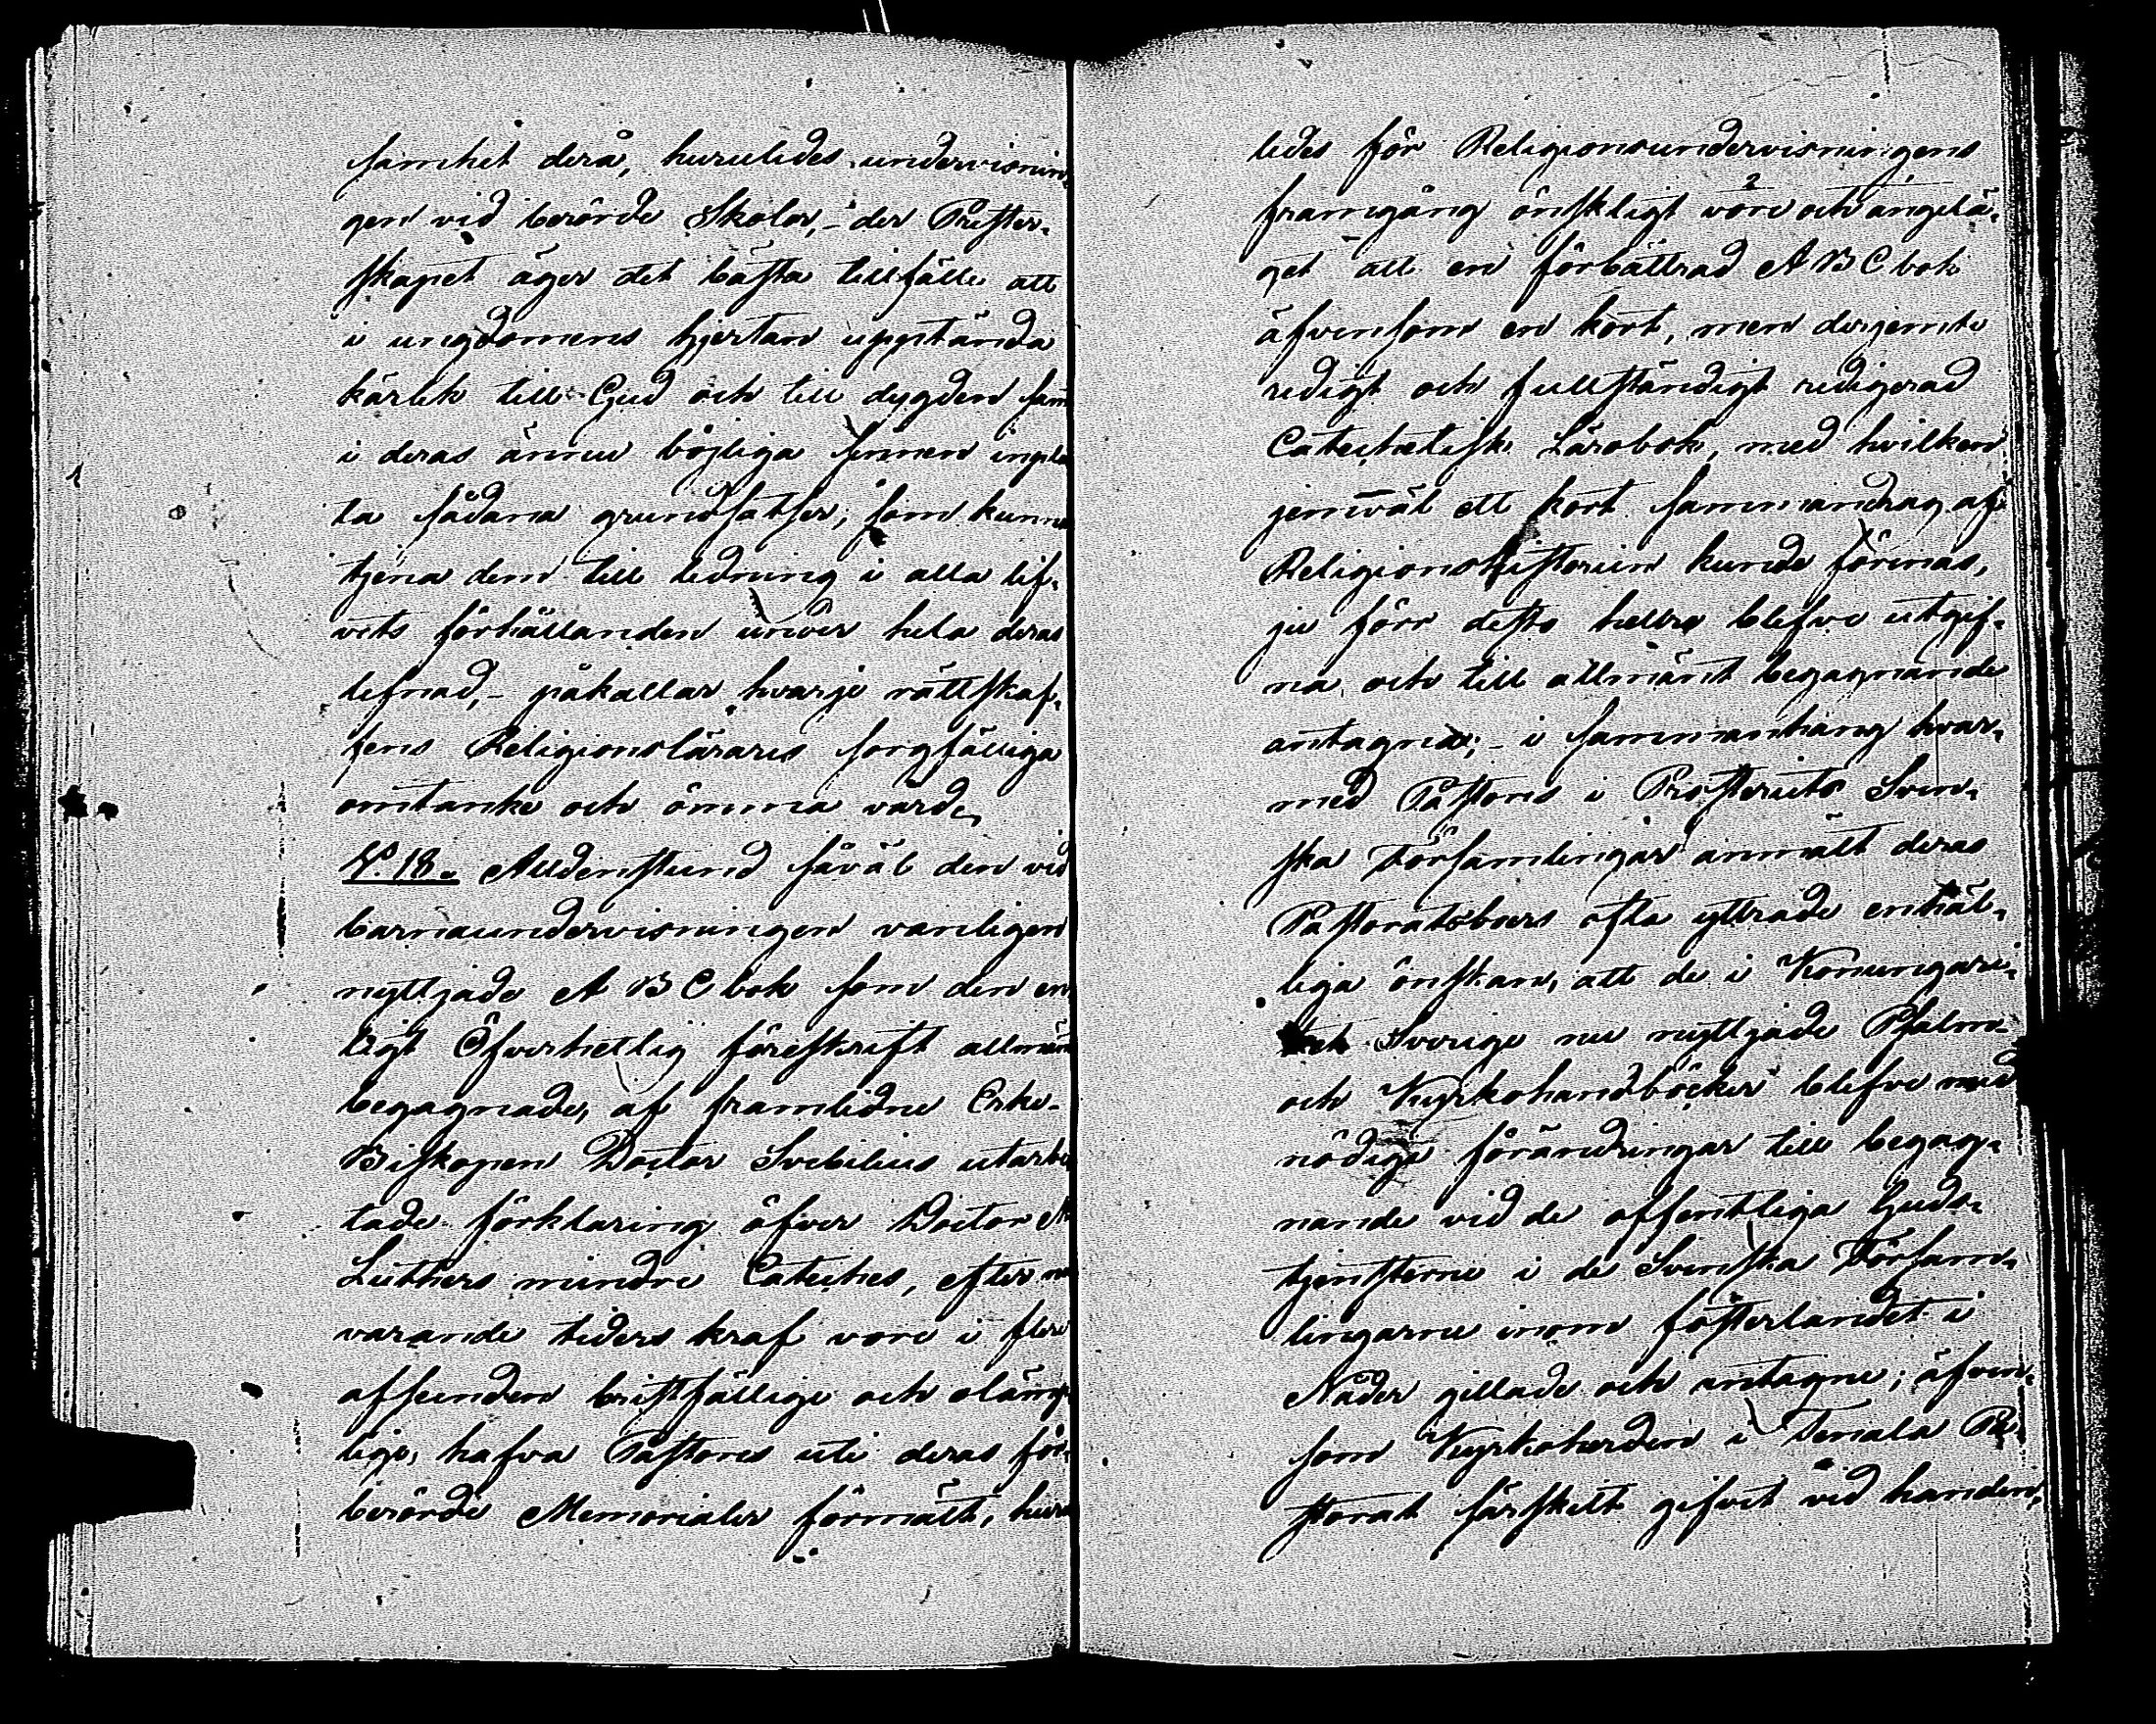 samhet derå, huruledes undervisnin¬
gen vid berörde Skolor, - der Prester¬
skapet äger det bästa tillfälle att
i ungdomens hjertan upptända
kärlek till Gud och till dygden sam
i deras ännu böjliga sinnen inplan
ta sådana grundsatser, som kunna
tjena dem till ledning i alla lif¬
vets förhållanden under hela deras
lefnad, - påkallar hvarje rättskaf¬
fens Religionslärares sorgfälliga
omtanke och ömma vård.
N:o 18. Alldenstund såväl den vid
barnaundervisningen vanligen
nyttjade A B C bok som den en¬
ligt Öfverhetlig föreskrift allmänt
begagnade, af framlidne Erke-
Biskopen Doctor Svebilius utarbe
tade förklaring öfver Doctor M
Luthers mindre Cateches, efter nu
varande tiders kraf vore i flere
afseenden bristfällige och olämp¬
lige, hafva Pastores uti deras för¬
berörde Memorialer förmält, huru
ledes för Religionsundervisningens
framgång önskligt vore och angelä¬
get att en förbättrad A B C bok
äfvensom en kort, men derjemte
redigt och fullständigt redigerad
Catechetisk Lärobok, med hvilken
jemväl ett kort sammandrag af
Religionshistorien kunde förenas,
ju förr desto hellre blefve utgif¬
na och till allmänt begagnande
antagna; - i sammanhang hvar¬
med Pastores i Prosteriets Sven¬
ska Församlingar anmält deras
Pastoratsboers ofta yttrade enhäl¬
liga önskan, att de i Konungari¬
ket Sverige nu nyttjade Psalm-
och Kyrkohandböcker blefve med
nödige förändringar till begag¬
nande vid de offentliga Guds¬
tjensterne i de Svenska Försam¬
lingarne inom fosterlandet i
Nåder gillade och antagne; äfven¬
som Kyrkoherden i Tenala Pa¬
storat särskilt gifvit vid handen,